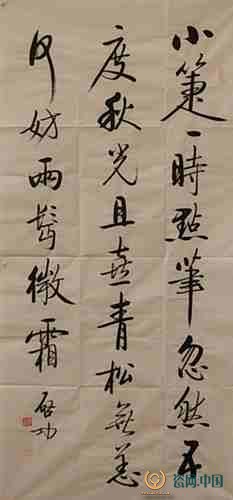 小箑一時點筆忽然五
度秋光且喜青松無恙
何妨兩鬢微霜
啟功
瓷网.中国